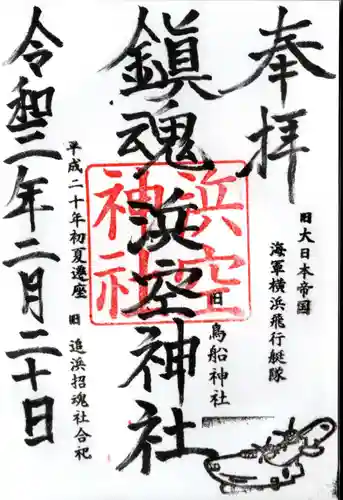 奉拝
旧大日本帝国
海軍横浜飛行艇隊
旧鳥船神社
鎮魂浜空神社
浜空
神社
平成二十年初夏遷座
旧追浜招魂社合祀
令和三年二月二十日